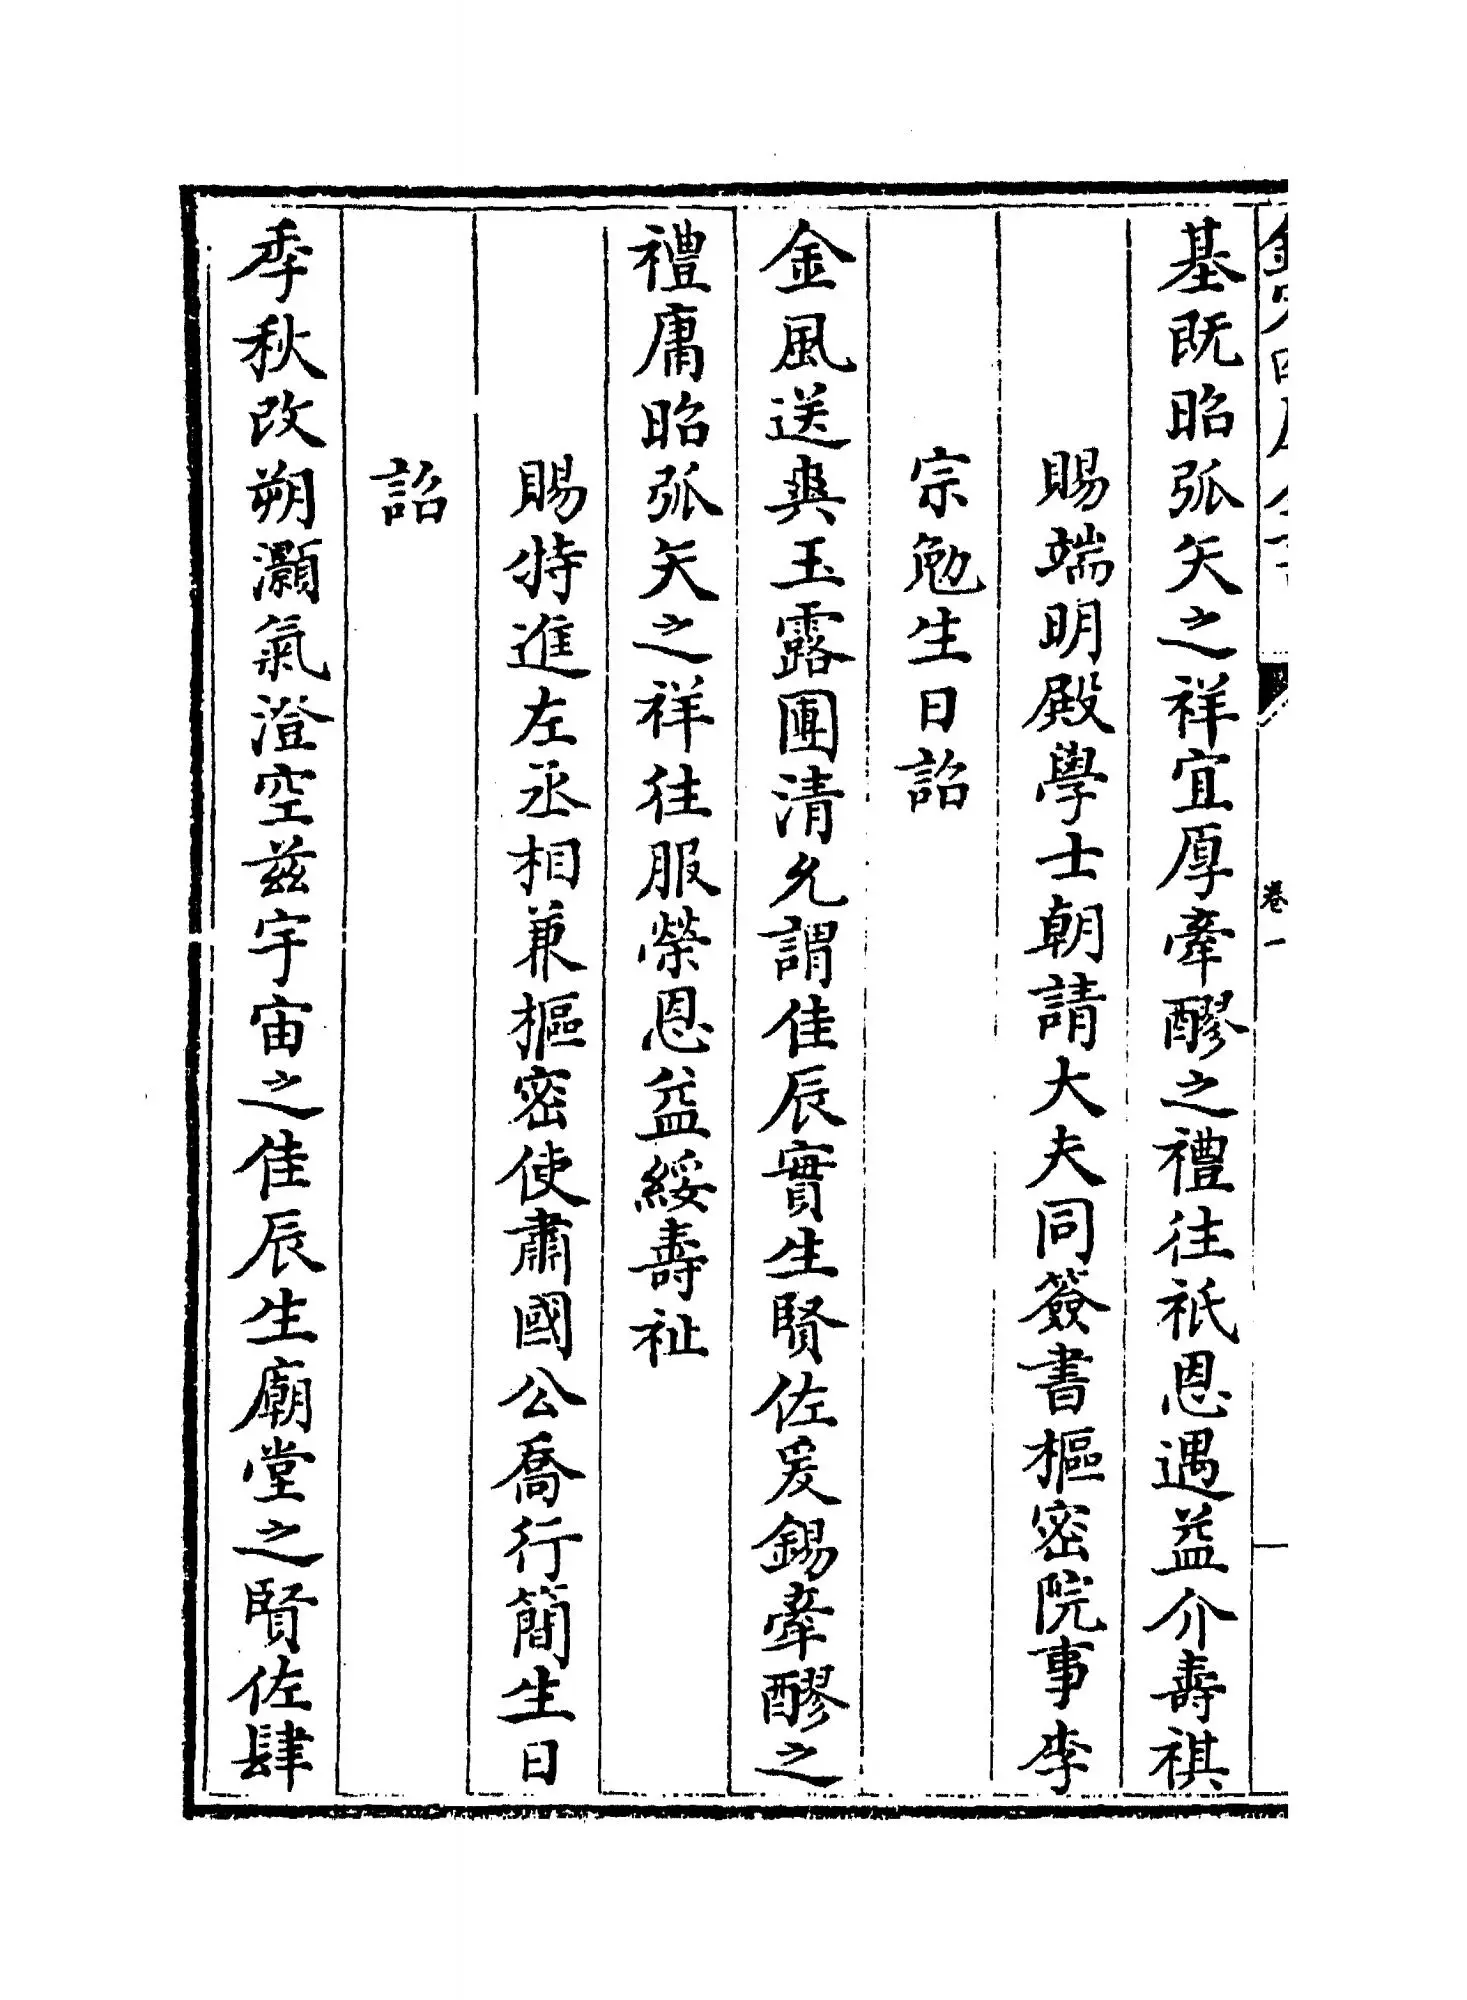 卷一
基既昭弧矢之祥宜厚牽醪之禮往祇恩遇益介壽祺
賜端明殿學士朝請大夫同簽書樞密院事李
宗勉生日詔
金風送爽玉露團清允謂佳辰實生賢佐爰錫牽醪之
禮庸昭弧矢之祥往服榮恩益綏壽祉
賜特進左丞相兼樞密使肅國公喬行簡生日
詔
季秋改朔灝氣澄空兹宇宙之佳辰生廟堂之賢佐肆